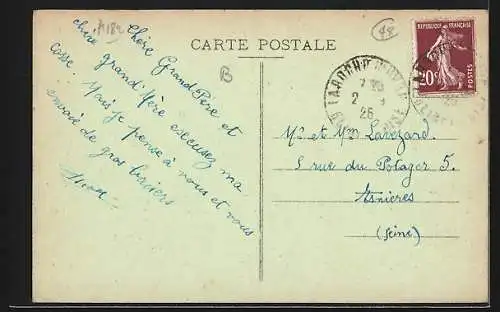 A182
48
CARTE POSTALE
B
REPUBLIQUE FRANÇAISE
20c
POSTES
2
26
Chère Grand Père et
chère grand Mère excusez ma
cosse. Mais je pense à vous et vous
envoie de gros baisers
Mr et Mme Lavezard
5 rue du Potager 5.
Asnières
(Seine)